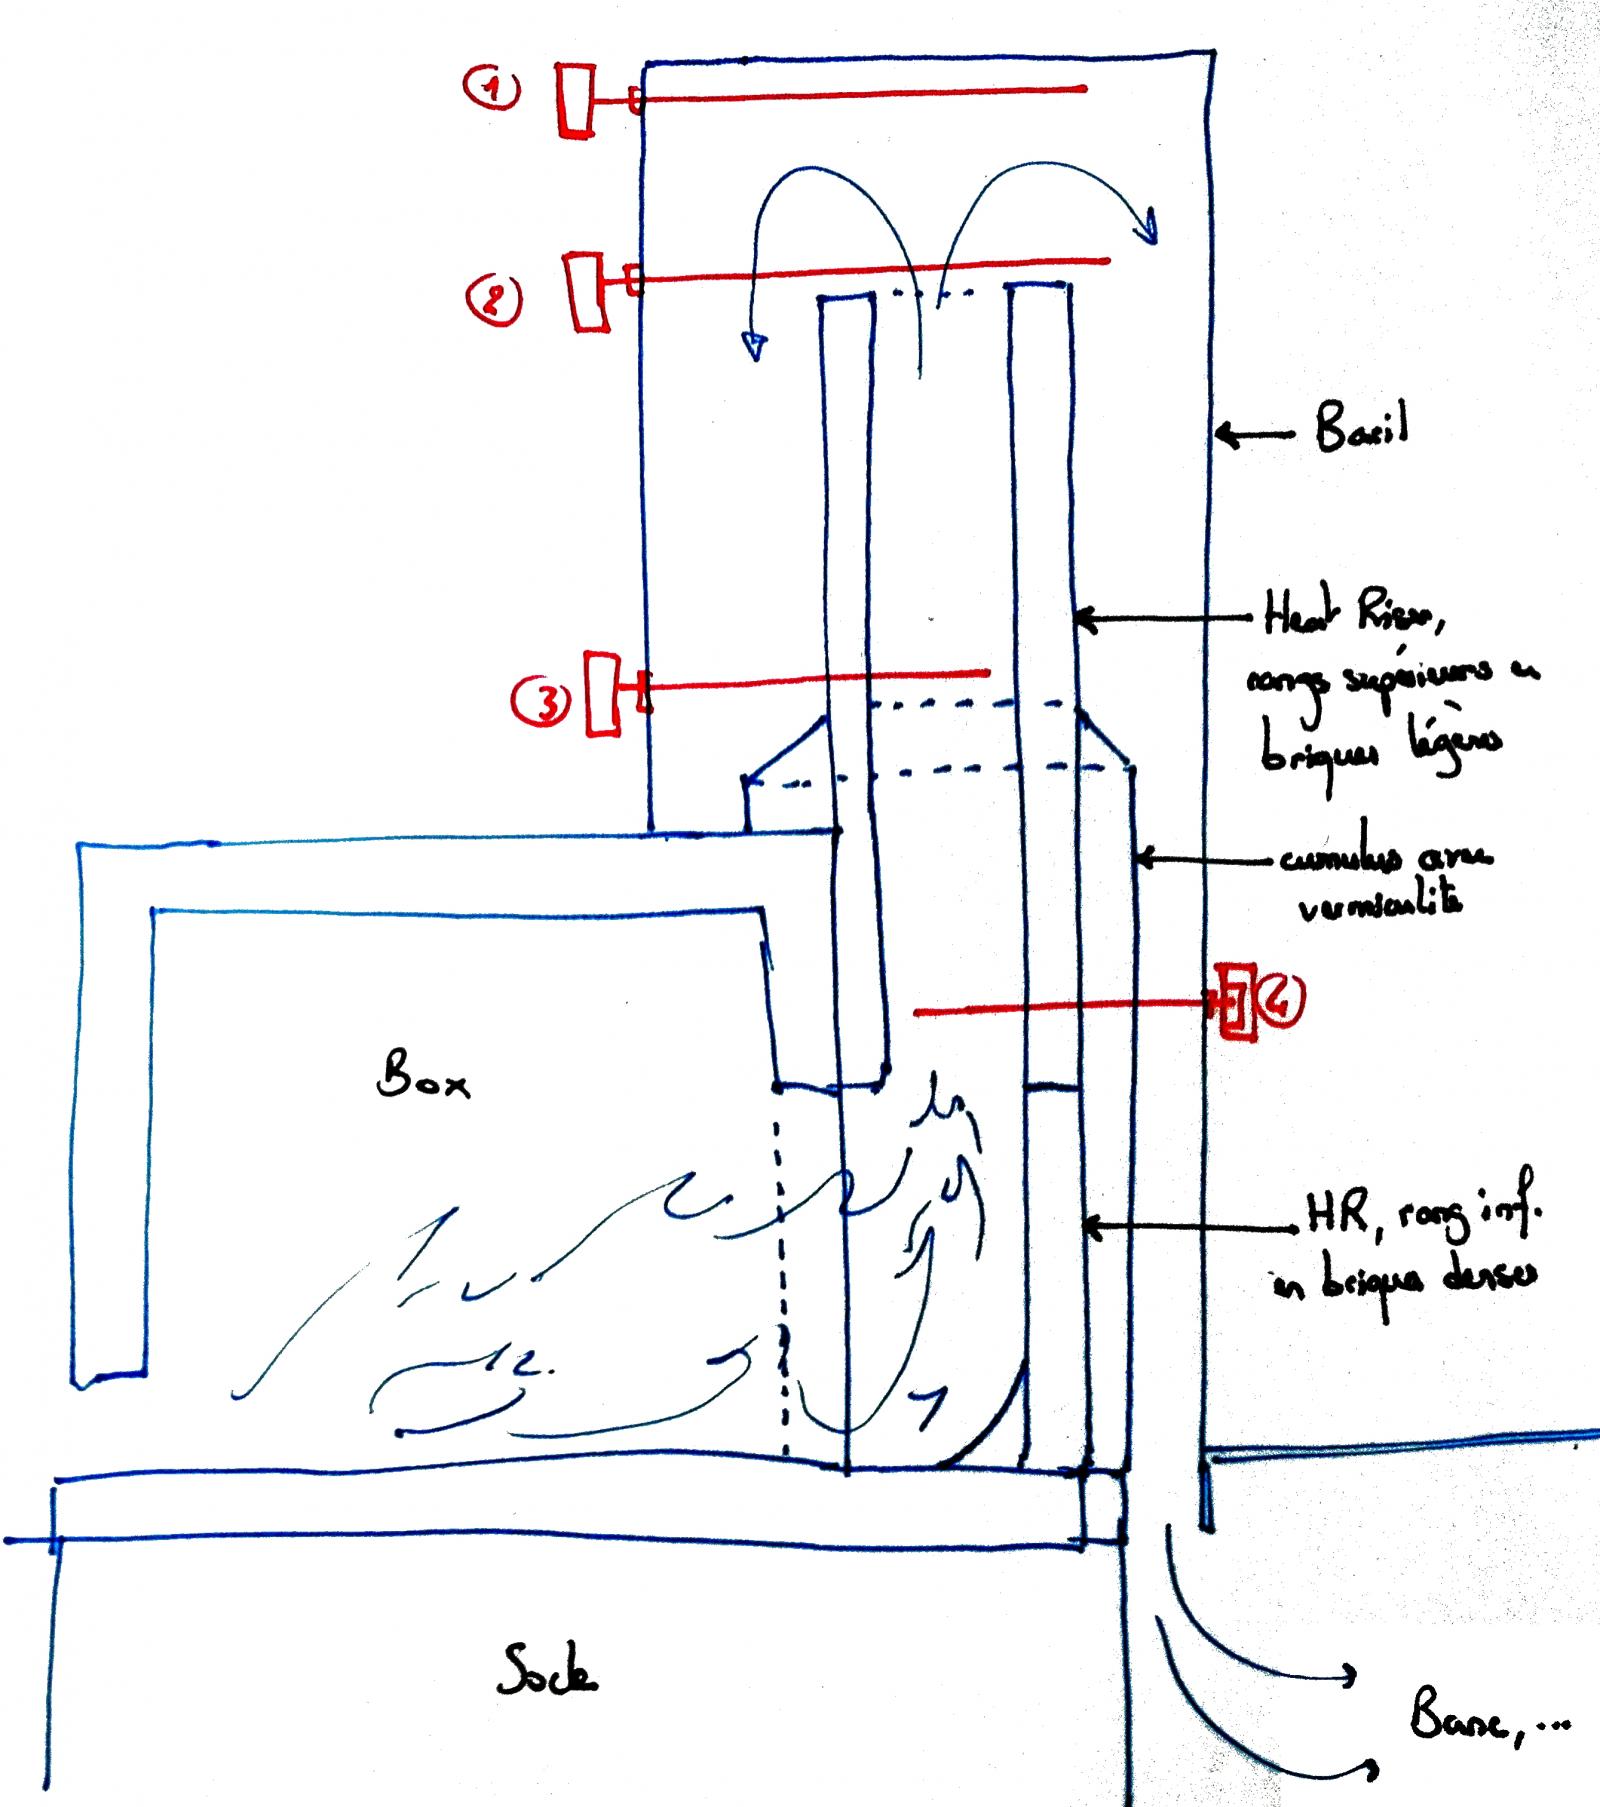 ①
②
Baril
Heat Riser,
rangs supérieurs en
briques légères
③
cumulus avec
vermiculite
④
Box
HR, rang inf.
en briques denses
Socle
Banc, ...